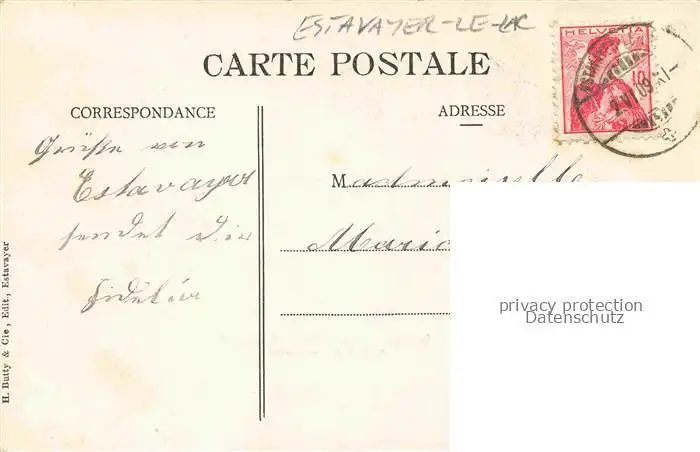 ESTAVAYER-LE-LAC
CARTE POSTALE
HELVETIA
10
CORRESPONDANCE
ADRESSE
Grüße von
Estavayer
sendet Dir
Mademoiselle
Marie
privacy protection
Datenschutz
H. Butty & Cie, Edit., Estavayer